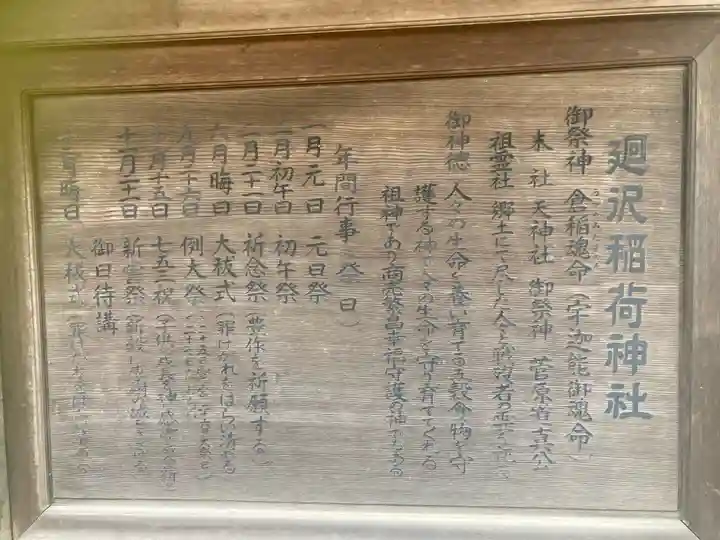 廻沢稲荷神社
御祭神 食稲魂命(宇迦能御魂命)
末社 天神社 御祭神 菅原道真公
祖霊社 郷土にて尽した人々と戦歿者の
御神徳 人々の生命を養い育てる五穀食物を守
護する神で人々の生命を守り育てくれる
祖神であり商売繁昌幸福守護の神である
年間行事(祭日)
一月元日 元日祭
二月初午日 初午祭
二月二十一日 祈念祭(豊作を祈願する)
六月晦日 大祓式(罪けがれをはらい清める)
九月二十六日 例大祭
十月十五日 七五三祝
十一月二十一日 新嘗祭
御日待講
月晦日 大祓式